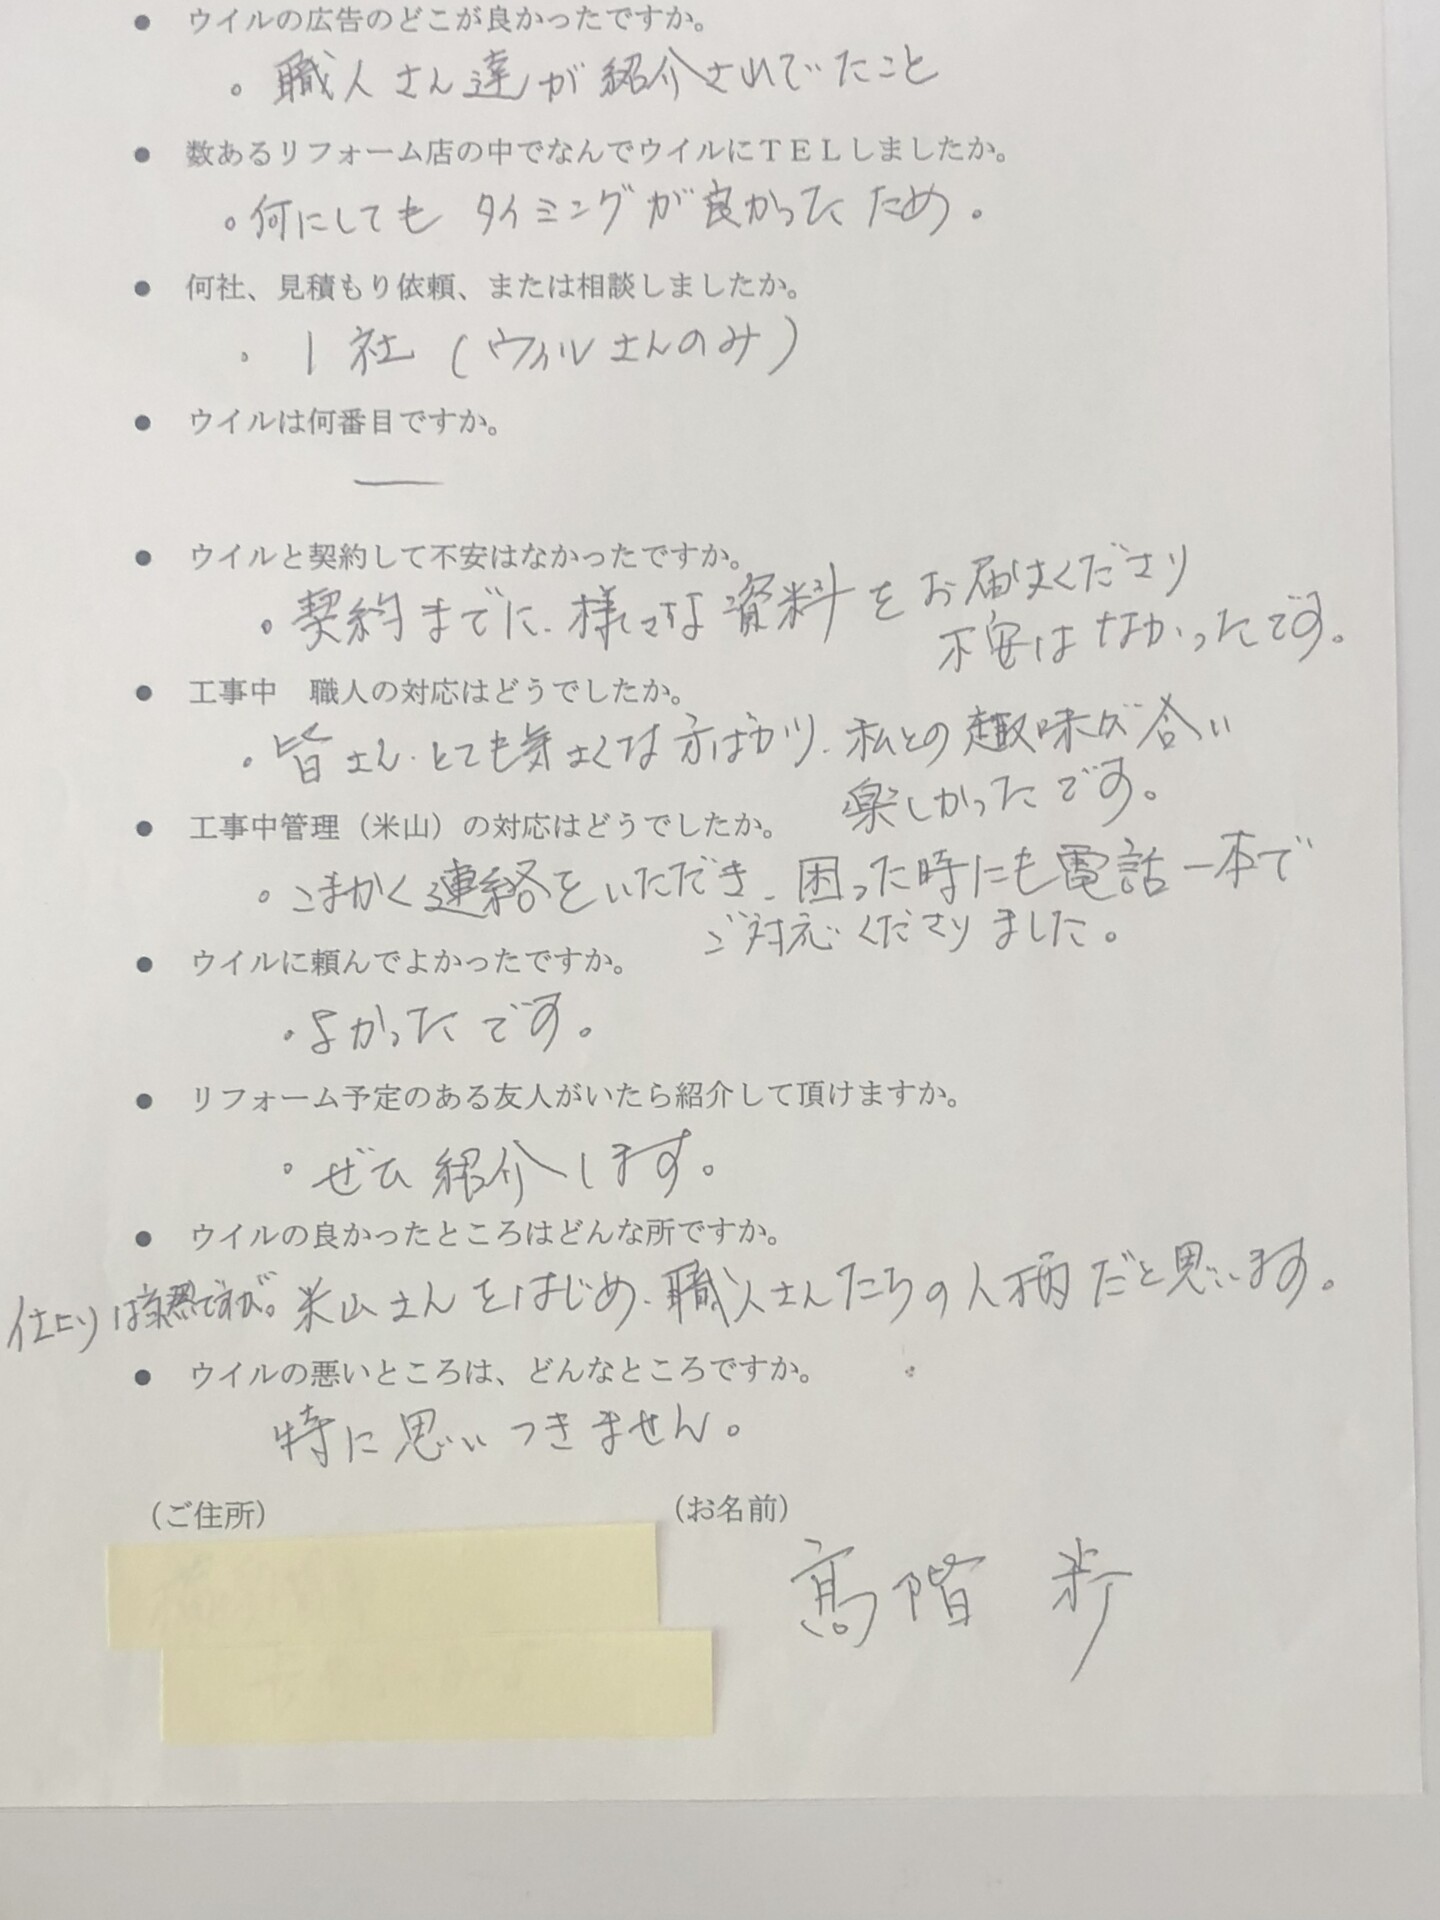 ● ウイルの広告のどこが良かったですか。
。職人さん達が紹介されていたこと
● 数あるリフォーム店の中でなんでウイルにＴＥＬしましたか。
。何にしても タイミングが良かったため。
● 何社、見積もり依頼、または相談しましたか。
・1社（ウィルさんのみ）
● ウイルは何番目ですか。
―
● ウイルと契約して不安はなかったですか。
。契約までに、様々な資料をお届けくださり
不安はなかったです。
● 工事中　職人の対応はどうでしたか。
。皆さん、とても気さくな方ばかり、私との趣味が合い
楽しかったです。
● 工事中管理（米山）の対応はどうでしたか。
。こまかく連絡をいただき、困った時にも電話一本で
ご対応くださりました。
● ウイルに頼んでよかったですか。
。よかったです。
● リフォーム予定のある友人がいたら紹介して頂けますか。
。ぜひ紹介します。
● ウイルの良かったところはどんな所ですか。
仕上りは当然ですが。米山さんをはじめ、職人さんたちの人柄だと思います。
● ウイルの悪いところは、どんなところですか。
特に思いつきません。
（ご住所）　（お名前）
髙階 歩